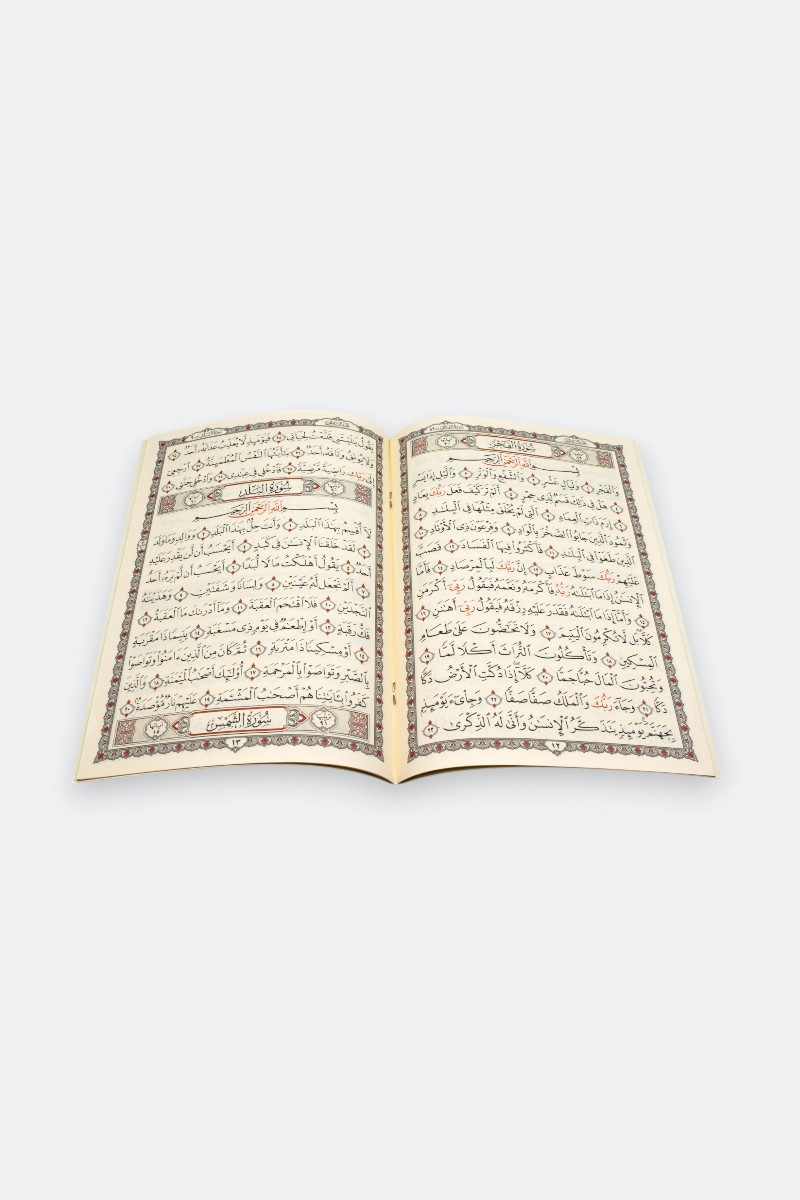 سُورَةُ الفَجْرِ
بِسْمِ اللَّهِ الرَّحْمَٰنِ الرَّحِيمِ
وَالْفَجْرِ ١ وَلَيَالٍ عَشْرٍ ٢ وَالشَّفْعِ وَالْوَتْرِ ٣ وَالَّيْلِ إِذَا يَسْرِ
٤ هَلْ فِي ذَٰلِكَ قَسَمٌ لِّذِي حِجْرٍ ٥ أَلَمْ تَرَ كَيْفَ فَعَلَ رَبُّكَ بِعَادٍ
٦ إِرَمَ ذَاتِ الْعِمَادِ ٧ الَّتِي لَمْ يُخْلَقْ مِثْلُهَا فِي الْبِلَٰدِ ٨
وَثَمُودَ الَّذِينَ جَابُوا الصَّخْرَ بِالْوَادِ ٩ وَفِرْعَوْنَ ذِي الْأَوْتَادِ ١٠
الَّذِينَ طَغَوْا فِي الْبِلَٰدِ ١١ فَأَكْثَرُوا فِيهَا الْفَسَادَ ١٢ فَصَبَّ
عَلَيْهِمْ رَبُّكَ سَوْطَ عَذَابٍ ١٣ إِنَّ رَبَّكَ لَبِالْمِرْصَادِ ١٤ فَأَمَّا
الْإِنسَٰنُ إِذَا مَا ابْتَلَىٰهُ رَبُّهُ فَأَكْرَمَهُ وَنَعَّمَهُ فَيَقُولُ رَبِّي أَكْرَمَنِ
١٥ وَأَمَّا إِذَا مَا ابْتَلَىٰهُ فَقَدَرَ عَلَيْهِ رِزْقَهُ فَيَقُولُ رَبِّي أَهَٰنَنِ ١٦
كَلَّا بَل لَّا تُكْرِمُونَ الْيَتِيمَ ١٧ وَلَا تَحَٰضُّونَ عَلَىٰ طَعَامِ
الْمِسْكِينِ ١٨ وَتَأْكُلُونَ التُّرَاثَ أَكْلًا لَّمًّا ١٩
وَتُحِبُّونَ الْمَالَ حُبًّا جَمًّا ٢٠ كَلَّا إِذَا دُكَّتِ الْأَرْضُ دَكًّا
دَكًّا ٢١ وَجَاءَ رَبُّكَ وَالْمَلَكُ صَفًّا صَفًّا ٢٢ وَجِايءَ يَوْمَئِذٍ
بِجَهَنَّمَ يَوْمَئِذٍ يَتَذَكَّرُ الْإِنسَٰنُ وَأَنَّىٰ لَهُ الذِّكْرَىٰ ٢٣
١٢
يَقُولُ يَٰلَيْتَنِي قَدَّمْتُ لِحَيَاتِي ٢٤ فَيَوْمَئِذٍ لَّا يُعَذِّبُ عَذَابَهُ أَحَدٌ ٢٥
وَلَا يُوثِقُ وَثَاقَهُ أَحَدٌ ٢٦ يَٰأَيَّتُهَا النَّفْسُ الْمُطْمَئِنَّةُ ٢٧ ارْجِعِي
إِلَىٰ رَبِّكِ رَاضِيَةً مَّرْضِيَّةً ٢٨ فَادْخُلِي فِي عِبَٰدِي ٢٩ وَادْخُلِي جَنَّتِي ٣٠
سُورَةُ البَلَدِ
بِسْمِ اللَّهِ الرَّحْمَٰنِ الرَّحِيمِ
لَا أُقْسِمُ بِهَٰذَا الْبَلَدِ ١ وَأَنتَ حِلٌّ بِهَٰذَا الْبَلَدِ ٢ وَوَالِدٍ وَمَا وَلَدَ
٣ لَقَدْ خَلَقْنَا الْإِنسَٰنَ فِي كَبَدٍ ٤ أَيَحْسَبُ أَن لَّن يَقْدِرَ عَلَيْهِ
أَحَدٌ ٥ يَقُولُ أَهْلَكْتُ مَالًا لُّبَدًا ٦ أَيَحْسَبُ أَن لَّمْ يَرَهُ أَحَدٌ
٧ أَلَمْ نَجْعَل لَّهُ عَيْنَيْنِ ٨ وَلِسَانًا وَشَفَتَيْنِ ٩ وَهَدَيْنَٰهُ
النَّجْدَيْنِ ١٠ فَلَا اقْتَحَمَ الْعَقَبَةَ ١١ وَمَا أَدْرَىٰكَ مَا الْعَقَبَةُ ١٢
فَكُّ رَقَبَةٍ ١٣ أَوْ إِطْعَٰمٌ فِي يَوْمٍ ذِي مَسْغَبَةٍ ١٤ يَتِيمًا ذَا مَقْرَبَةٍ
١٥ أَوْ مِسْكِينًا ذَا مَتْرَبَةٍ ١٦ ثُمَّ كَانَ مِنَ الَّذِينَ ءَامَنُوا وَتَوَاصَوْا
بِالصَّبْرِ وَتَوَاصَوْا بِالْمَرْحَمَةِ ١٧ أُولَٰئِكَ أَصْحَٰبُ الْمَيْمَنَةِ ١٨ وَالَّذِينَ
كَفَرُوا بِـَٔايَٰتِنَا هُمْ أَصْحَٰبُ الْمَشْـَٔمَةِ ١٩ عَلَيْهِمْ نَارٌ مُّؤْصَدَةٌ ٢٠
سُورَةُ الشَّمْسِ
١٣